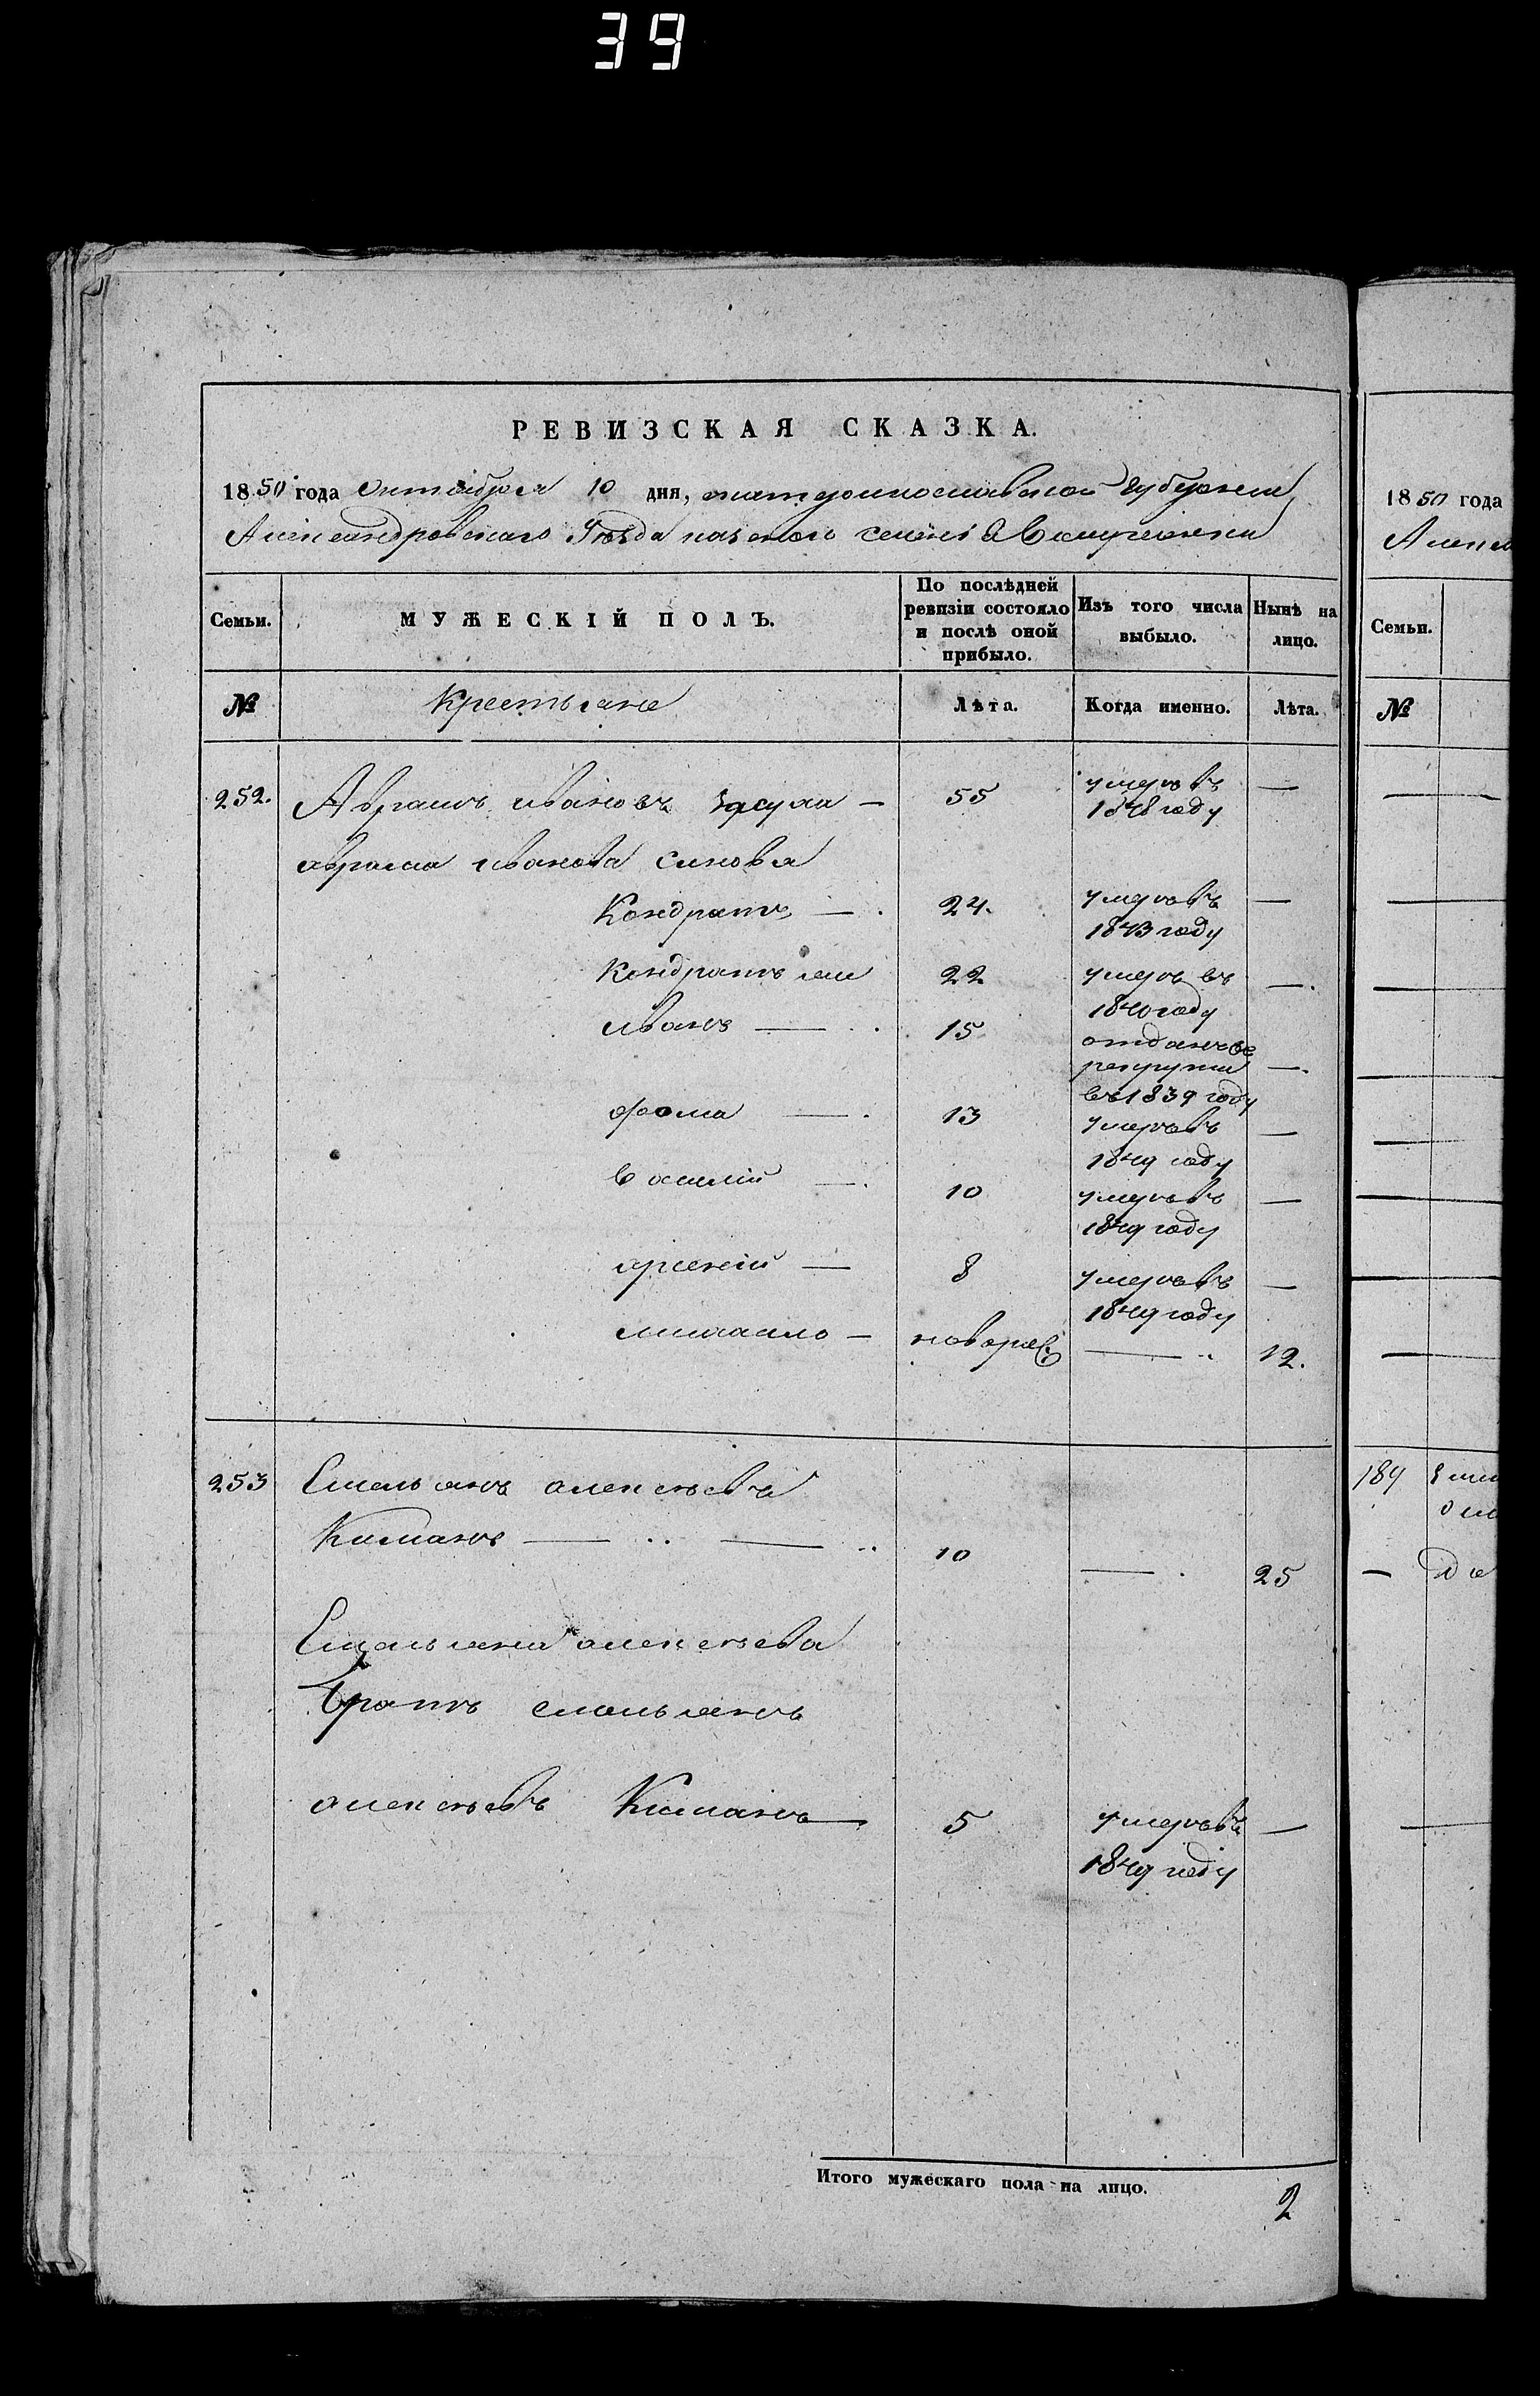 39
РЕВИЗСКАЯ СКАЗКА.
1850 года Октября 10 дня, екатеринославской губернии
Александровского Уезда казенного селения
Семьи. МУЖЕСКІЙ ПОЛЪ. По послѣдней ревизіи состояло и послѣ оной прибыло. Изъ того числа выбыло. Нынѣ на лицо.
№ Крестьяне Лѣта. Когда именно. Лѣта.
252. Аврамъ ивановъ — 55 умеръ въ —
1848 году
аврама иванова синовя
Кондратъ — . 24. умеръ въ —
1843 году
Кондратъ 22 умеръ въ — .
1840 году
иванъ — 15 отданъ въ
рекруты — .
въ 1839 году
фома — . 13 умеръ въ —
1849 году
василій — . 10 умеръ въ —
1849 году
арсеній — 8 умеръ въ —
1849 году
михайло — новорж: — 12.
253 Емельянъ алексѣевъ
Кисманъ — .. — .. 10 — . 25
Емельяна алексѣева
Братъ емельянъ
алексѣевъ Кисманъ — 5 умеръ въ —
1849 году
Итого мужескаго пола на лицо. 2
1850 года
Семьи.
№
189